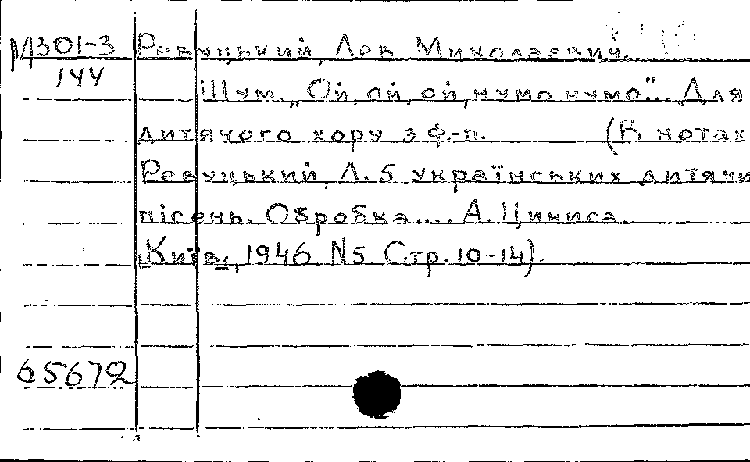 М301-3 Ревуцький, Лев Миколаевич.
144
Шум. „Ой, ой, ой, нумо нумо". Для
дитячого хору з ф.-п. (В нотах
Ревуцький, Л. 5 українських дитячи
пісень. Обробка.... А.
Київ, 1946 N5 Стр. 10-14).
65672